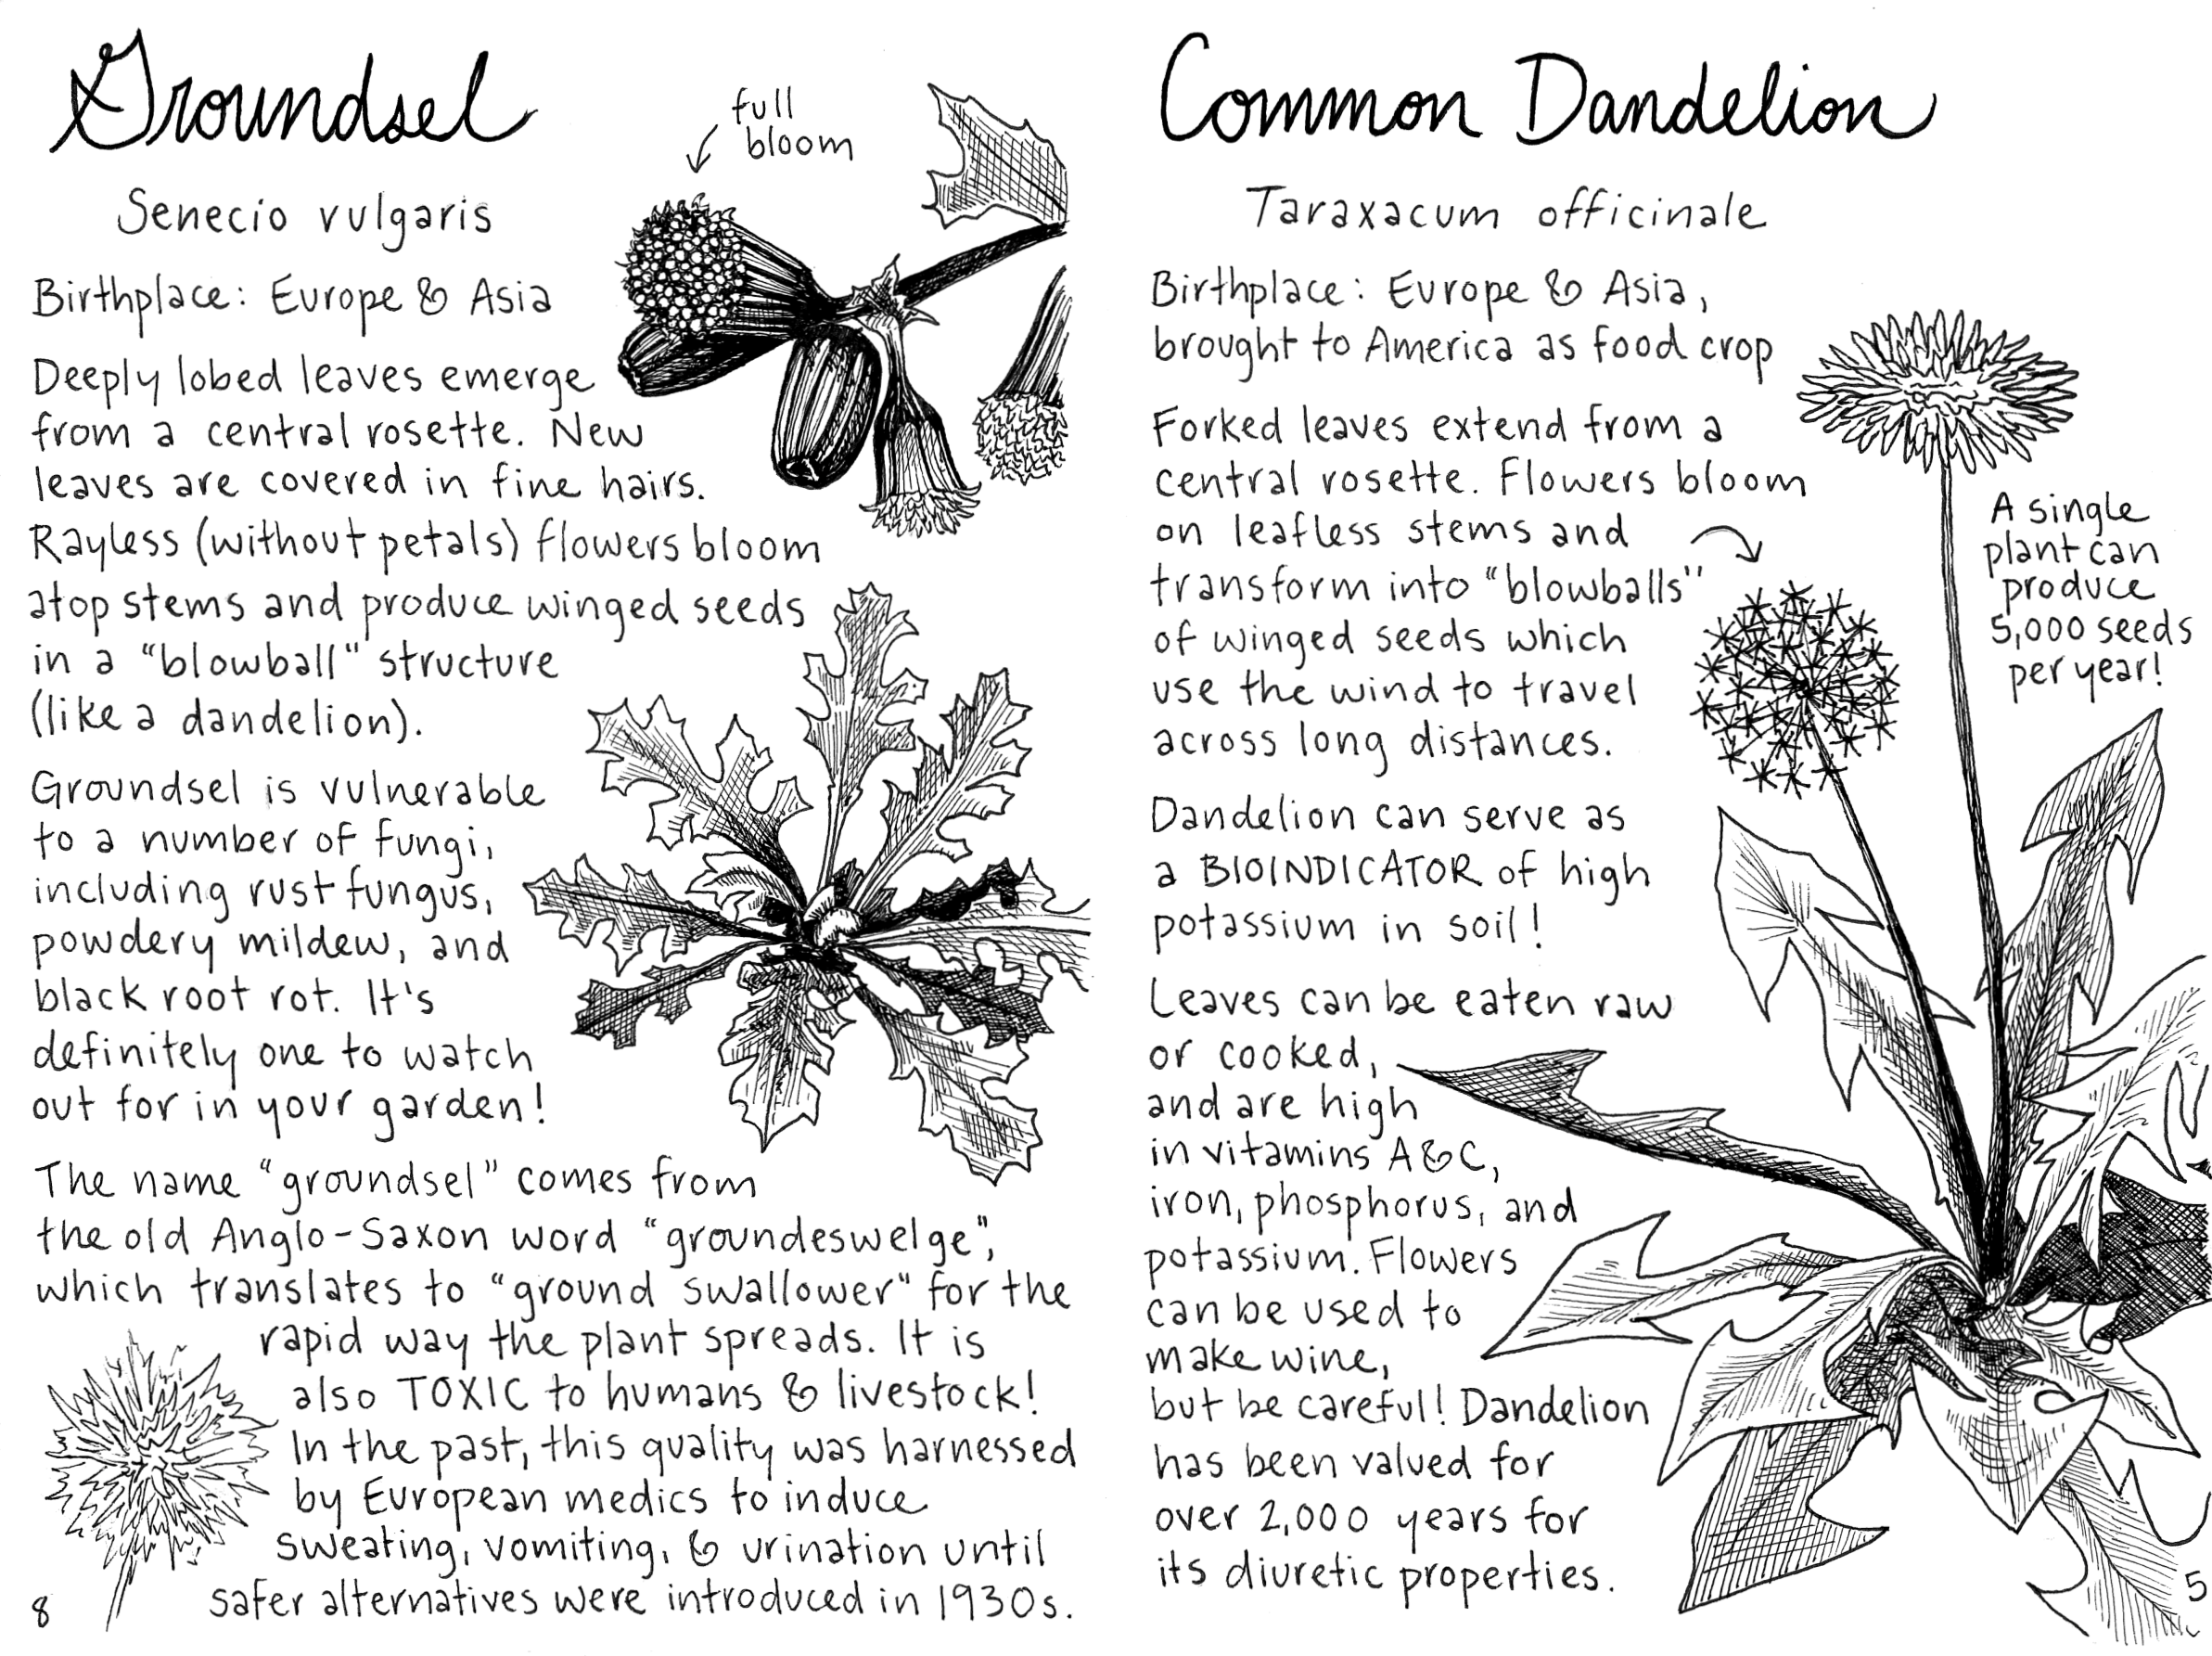 Groundsel
full
bloom
Senecio vulgaris
Birthplace: Europe & Asia
Deeply lobed leaves emerge
from a central rosette. New
leaves are covered in fine hairs.
Rayless (without petals) flowers bloom
atop stems and produce winged seeds
in a "blowball" structure
(like a dandelion).
Groundsel is vulnerable
to a number of fungi,
including rust fungus,
powdery mildew, and
black root rot. It's
definitely one to watch
out for in your garden!
The name "groundsel" comes from
the old Anglo-Saxon word "groundeswelge",
which translates to "ground swallower" for the
rapid way the plant spreads. It is
also TOXIC to humans & livestock!
In the past, this quality was harnessed
by European medics to induce
sweating, vomiting, & urination until
safer alternatives were introduced in 1930s.
8
Common Dandelion
Taraxacum officinale
Birthplace: Europe & Asia,
brought to America as food crop
Forked leaves extend from a
central rosette. Flowers bloom
on leafless stems and
transform into "blowballs"
of winged seeds which
use the wind to travel
across long distances.
A single
plant can
produce
5,000 seeds
per year!
Dandelion can serve as
a BIOINDICATOR of high
potassium in soil!
Leaves can be eaten raw
or cooked,
and are high
in vitamins A&C,
iron, phosphorus, and
potassium. Flowers
can be used to
make wine,
but be careful! Dandelion
has been valued for
over 2,000 years for
its diuretic properties.
5